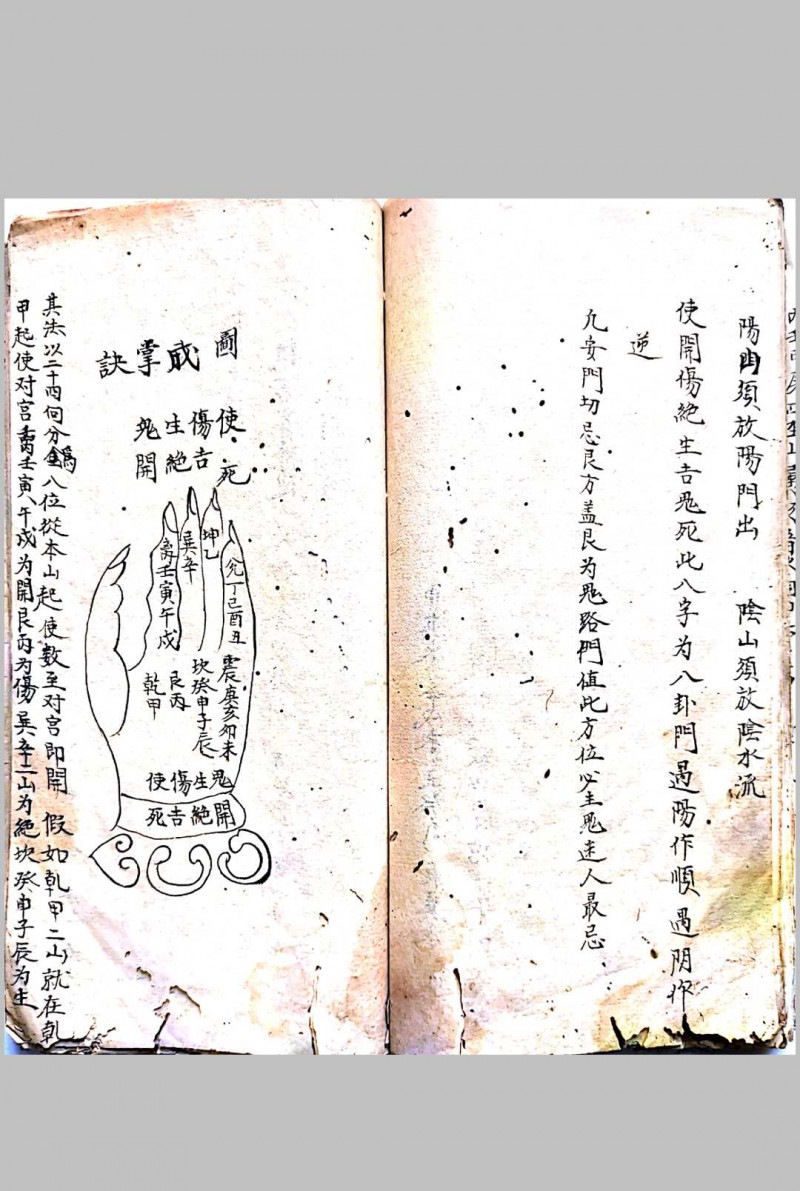 陽山須放陽門出　陰山須放陰水流
使開傷絶生吉鬼死此八字为八卦門遇陽作順遇阴作
逆
凢安門切忌艮方盖艮为鬼路門值此方位必主鬼迷人最忌
圖成掌訣
使死
傷吉
生絶
鬼開
兊丁巳酉丑
坤乙
巽辛
离壬寅午戍
震庚亥卯未
坎癸申子辰
艮丙
乾甲
鬼生傷使
開絶吉死
其法以二十四向分為八位從本山起使数至对宫即開　假如乾甲二山就在乾
甲起使对宫离壬寅午戍为開艮丙为傷巽辛二山为絶坎癸申子辰为生